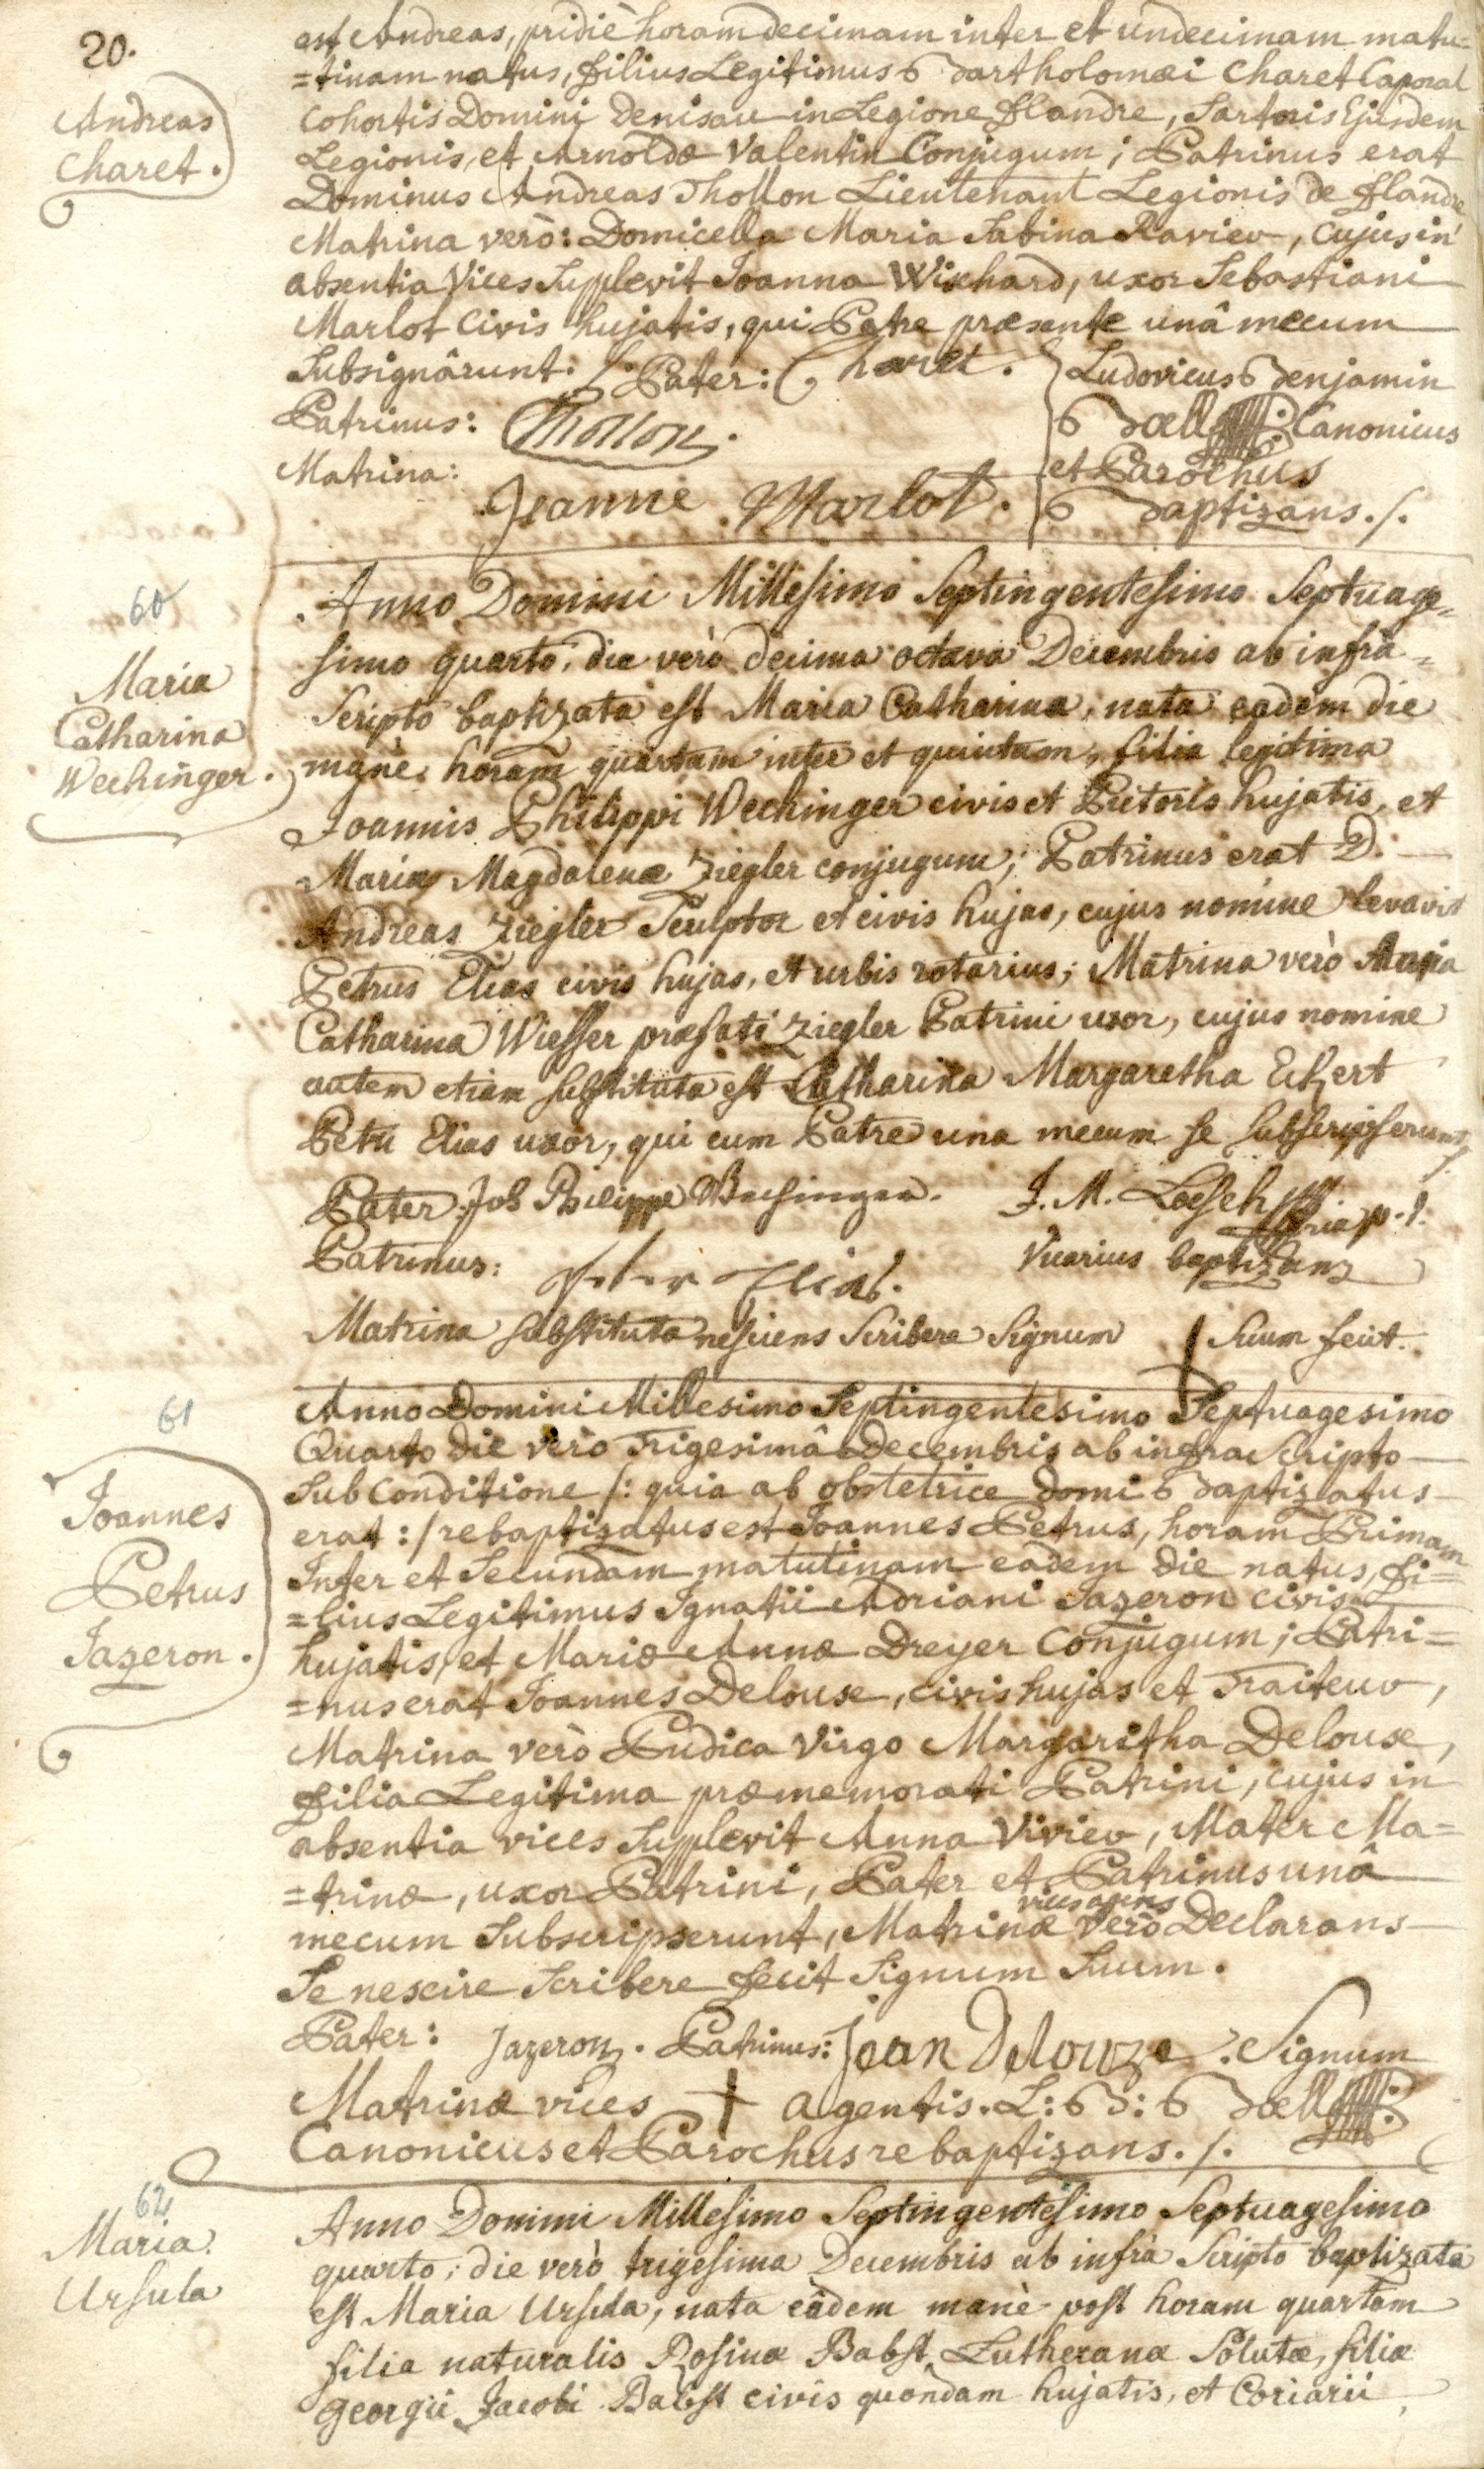 20.
Andreas
Charet.
est Andreas, pridiè horam decimam inter et undecimam matu=
=tinam natus, filius Legitimus Bartholomæi Charet Caporal
Cohortis Domini Denisau in Legione Flandre, Sartoris Ejusdem
Legionis, et Arnoldæ Valentin Conjugum; Patrinus erat
Dominus Andreas Thollon Lieutenant Legionis de Flandre
Matrina verò: Domicella Maria Sabina Ravieu, cujus in
absentia Vices Supplevit Joanna Wixhard, uxor Sebastiani
Marlot Civis hujatis, qui Patre præsente unâ mecum
Subsignârunt. Pater: Charet.
Patrinus: Thollon.
Matrina: Jeanne Marlot.
Ludovicus Benjamin
Bœll Canonicus
et Parochus
Baptizans./.
60
Maria
Catharina
Wechinger.
Anno Domini Millesimo Septingentesimo Septuage=
simo quarto, die verò decima octava Decembris ab infrà=
Scripto baptizata est Maria Catharina, nata eadem die
manè horam quartam inter et quintam, filia legitima
Joannis Philippi Wechinger civis et Pictoris hujatis, et
Mariæ Magdalenæ Ziegler conjugum; Patrinus erat D.
Andreas Ziegler Sculptor et civis hujas, cujus nomine levavit
Petrus Elias civis hujas, et urbis rotarius; Matrina verò Maria
Catharina Wiesser præfati Ziegler Patrini uxor, cujus nomine
autem etiam substituta est Catharina Margaretha Ekert
Petri Elias uxor, qui cum Patre una mecum se subscripserunt
Pater Joh Philippe
Patrinus: Elias.
J. M. Loesch p.t.
Vicarius baptizans
Matrina substituta nesciens Scribere Signum † Suum fecit.
61
Joannes
Petrus
Jazeron.
Anno Domini Millesimo Septingentesimo Septuagesimo
Quarto die verò Trigesimâ Decembris ab infra Scripto
Sub Conditione /: quia ab obstetrice domi Baptizatus
erat :/ rebaptizatus est Joannes Petrus, horam Primam
Inter et Secundam matutinam eadem die natus, fi=
=lius Legitimus Ignatii Adriani Jazeron civis
hujatis, et Mariæ Annæ Dreyer Conjugum; Patri=
=nus erat Joannes Delouse, civis hujas et Traiteur,
Matrina verò Pudica Virgo Margaritha Delouse,
filia Legitima præmemorati Patrini, cujus in
absentia vices Supplevit Anna Vivieu, Mater Ma=
=trinæ, uxor Patrini, Pater et Patrinus unâ
mecum Subscripserunt, Matrinæ vices agens verò Declarans
Se nescire Scribere fecit Signum Suum.
Pater: Jazeron. Patrinus: Jean Delouze. Signum
Matrinæ vices † agentis. L: B: Bœll
Canonicus et Parochus rebaptizans./.
62
Maria
Ursula
Anno Domini Millesimo Septingentesimo Septuagesimo
quarto; die verò trigesima Decembris ab infrà Scripto baptizata
est Maria Ursula, nata eâdem manè post horam quartam
filia naturalis Rosinæ Babst Lutheranæ Solutæ, filiæ
Georgii Jacobi Babst civis quondam hujatis, et Coriarii,